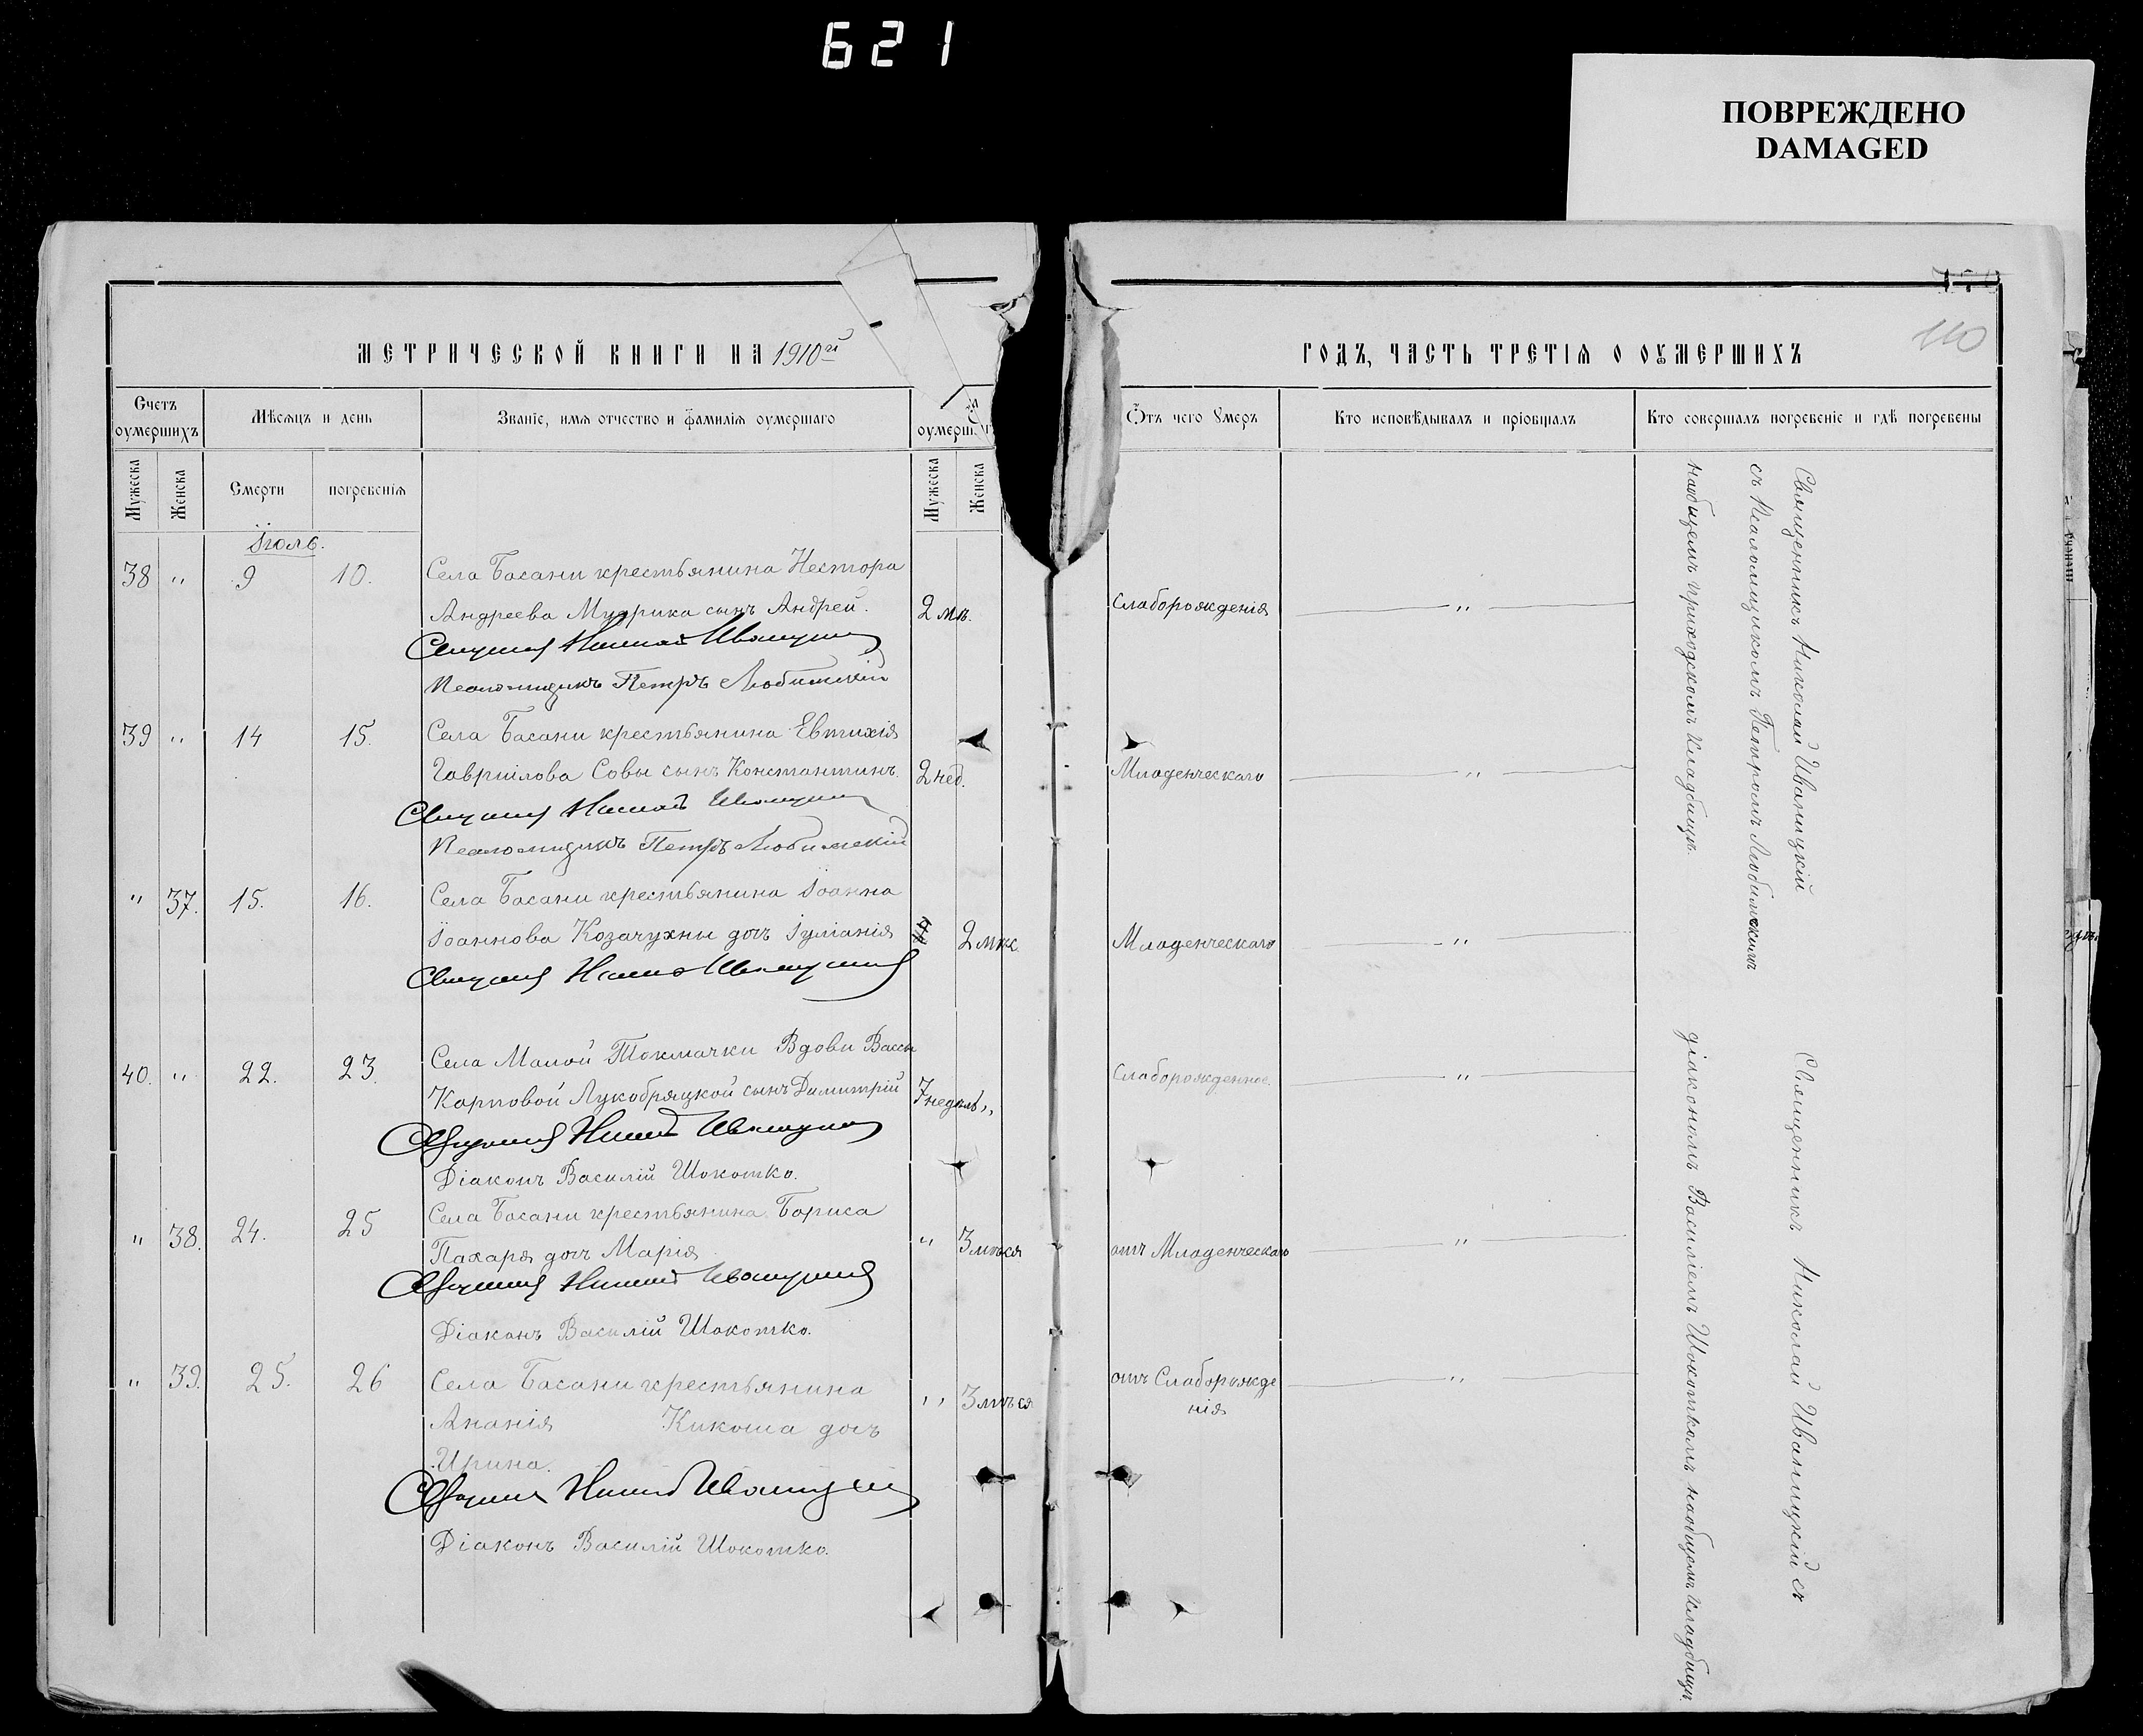 621
ПОВРЕЖДЕНО
DAMAGED
110
МЕТРИЧЕСКОЙ КНИГИ НА 1910й
ГОДЪ, ЧАСТЬ ТРЕТІЯ О ОУМЕРШИХЪ
Счетъ оумершихъ
Мѣсяцъ и день
Званіе, имя отчество и фамилія оумершаго
оумерш
Отъ чего Умеръ
Кто исповѣдывалъ и пріобщалъ
Кто совершалъ погребеніе и гдѣ погребены
Мужеска
Женска
Смерти
погребенія
Мужеска
Женска
Іюль.
38 " 9 10. Села Басани крестьянина Нестора
Андреева Мудрика сынъ Андрей. 2 мѣ. Слаборожденія "
Священникъ Николай Иваницкій
Псаломщикъ Петръ Любимскій
39 " 14 15. Села Басани крестьянина Евтихія
Гавриілова Совы сынъ Константинъ. 2 нед. Младенческаго "
Священникъ Николай Иваницкій
Псаломщикъ Петръ Любимскій
" 37. 15. 16. Села Басани крестьянина Іоанна
Іоаннова Козачухны дочь Іуліанія 2 мѣс Младенческаго "
Священникъ Николай Иваницкій
40. " 22. 23. Села Малой Токмачки Вдовы Вассы
Карповой Лукобряцкой сынъ Димитрій 7 недѣль " Слаборожденное. "
Священникъ Николай Иваницкій
Діаконъ Василій Шокотко.
" 38. 24. 25 Села Басани крестьянина Бориса
Пахаря дочь Марія " 3 мѣся отъ Младенческаго "
Священникъ Николай Иваницкій
Діаконъ Василій Шокотко.
" 39. 25. 26 Села Басани крестьянина
Ананія Кикоша дочь " 3 мѣся отъ Слаборожде
нія "
Ирина.
Священникъ Николай Иваницкій
Діаконъ Василій Шокотко.
Священникъ Николай Иваницкій
съ Псаломщикомъ Петромъ Любимскимъ
наобщемъ приходскомъ кладбищѣ.
Священникъ Николай Иваницкій съ
діакономъ Василіемъ Шокоткомъ наобщемъ кладбищѣ.